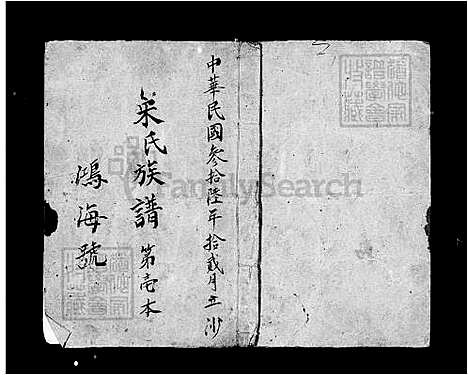 中華民國叁拾陸年拾貳月立沙
菜氏族譜 第壱本
鴻海號
FamilySearch